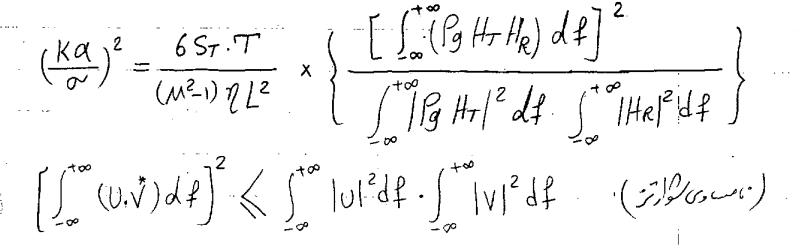 (Ka/σ)² = 6 S_T . T / (M²-1) η L² × { [∫_{-∞}^{+∞} (Pg H_T H_R) df]² / ∫_{-∞}^{+∞} |Pg H_T|² df . ∫_{-∞}^{+∞} |H_R|² df }
[∫_{-∞}^{+∞} (U.V*) df]² ≤ ∫_{-∞}^{+∞} |U|² df . ∫_{-∞}^{+∞} |V|² df (نامساوی شوارتز)